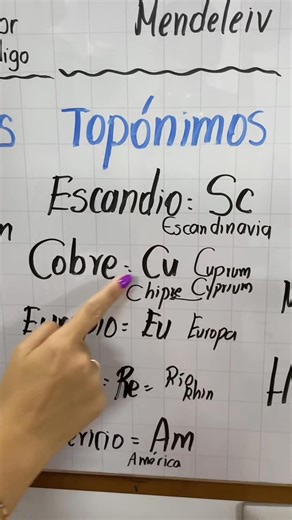 Mendeleiv
Topónimos
Escandio: Sc
Escandinavia
Cobre: Cu Cuprum
Chipre Cyprium
= Eu Europa
= Re = Río
Rhin
= Am
América